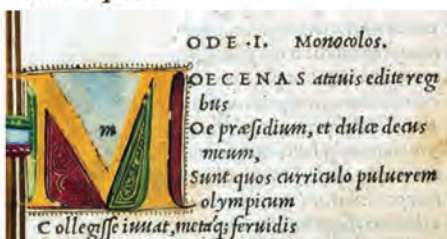 ODE .I. Monocolos.
M OECENAS atauis edite regi
bus
Oe præsidium, et dulce decus
meum,
Sunt quos curriculo puluerem
olympicum
Collegisse iuuat, metaq; feruidis